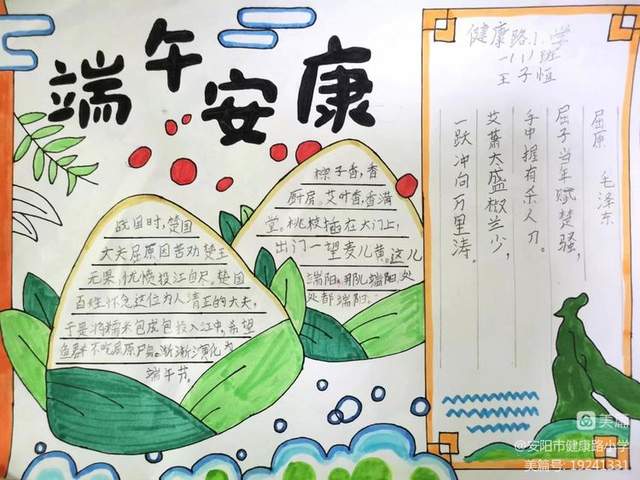 端午安康
战国时,楚国
大夫屈原因苦劝楚王
无果,忧愤投江自尽,楚国
百姓怀念这位为人清正的大夫,
于是将糯米包成包投入江中,希望
鱼群不吃屈原尸首。渐渐演化为
端午节。
粽子香,香
厨房。艾叶香,香满
堂。桃枝插在大门上,
出门一望麦儿黄。这儿
端阳,那儿端阳,处
处都端阳。
健康路小学
一(1)班
王子恒
屈原
毛泽东
屈子当年赋楚骚,
手中握有杀人刀。
艾萧太盛椒兰少,
一跃冲向万里涛。
美篇
@安阳市健康路小学
美篇号: 19241331